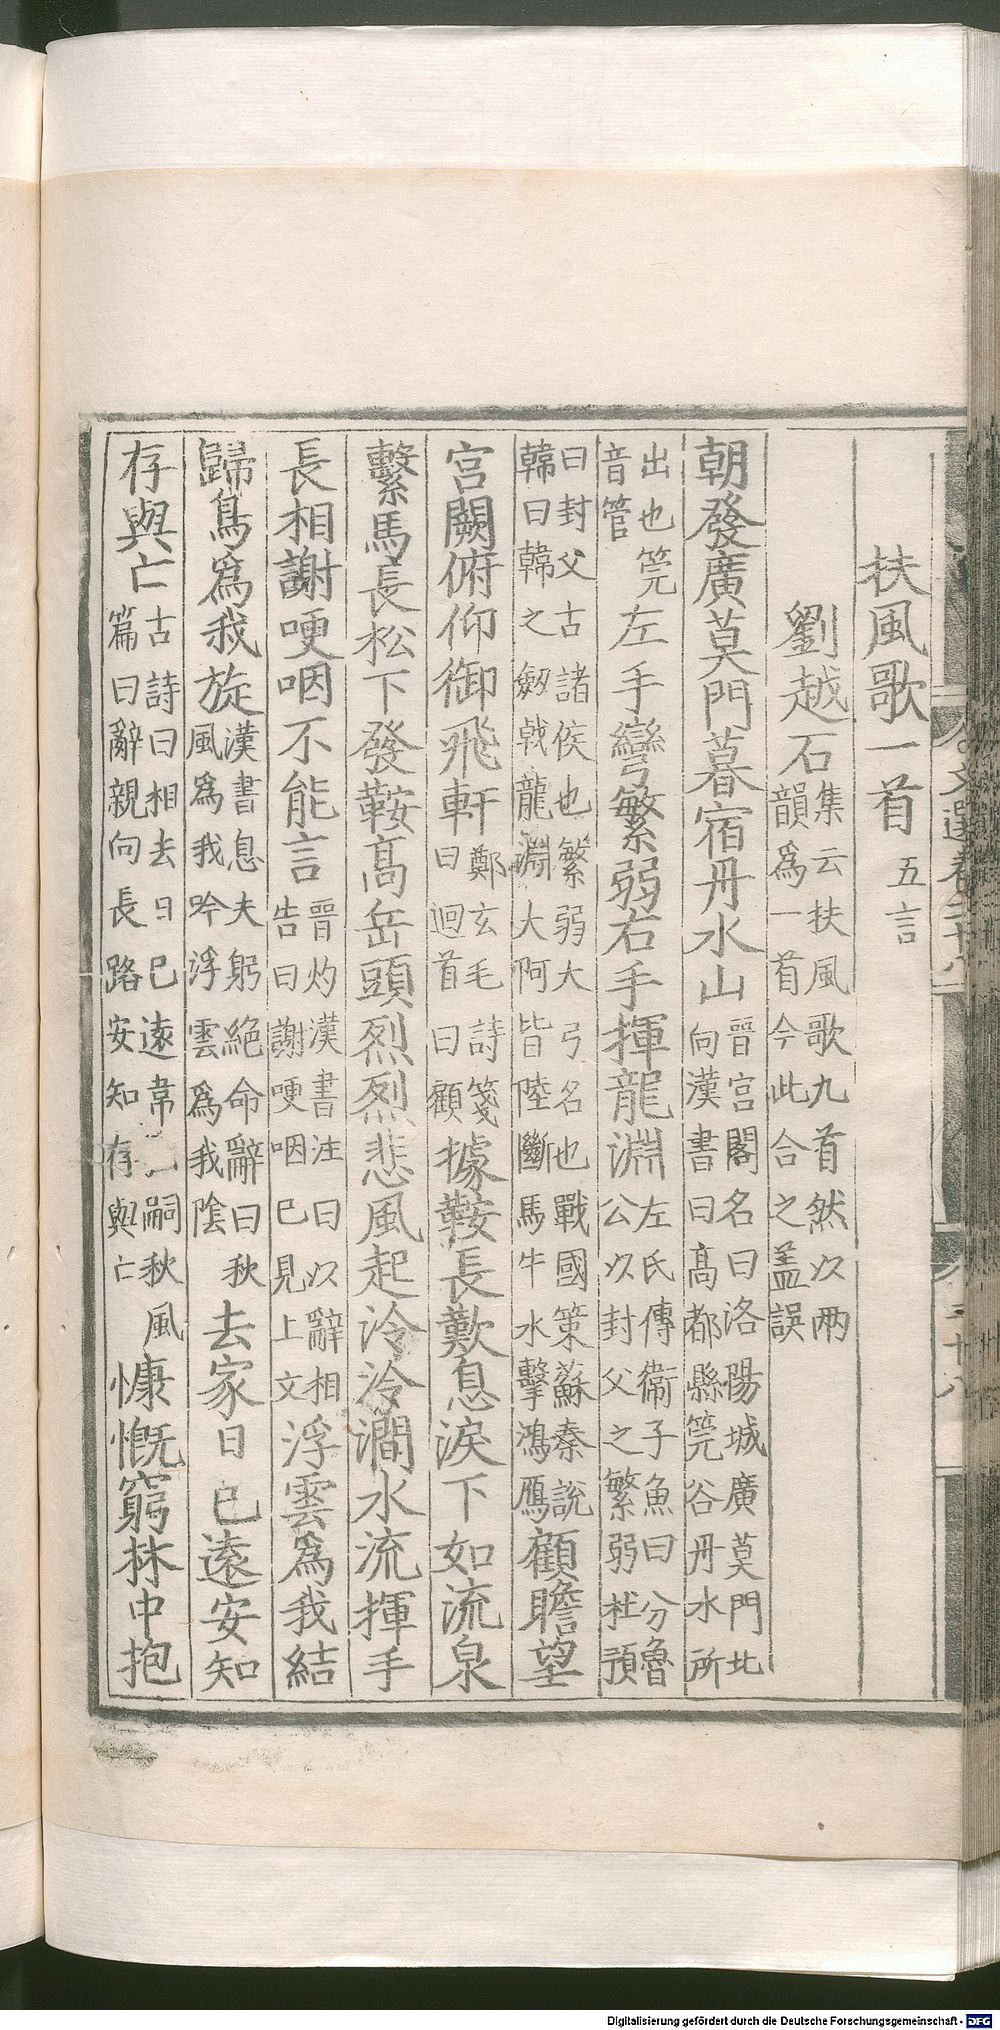 扶風歌一首五言
劉越石集云扶風歌九首然以兩韻爲一首今此合之盖誤
朝發廣莫門暮宿丹水山晉宮閣名曰洛陽城廣莫門北向漢書曰髙都縣筦谷丹水所
出也筦音管左手彎繁弱右手揮龍淵左氏傳衞子魚曰分魯公以封父之繁弱杜預
曰封父古諸侯也繁弱大弓名也戰國策蘇秦說韓曰韓之劔戟龍淵大阿皆陸斷馬牛水擊鴻鴈顧瞻望
宮闕俯仰御飛軒鄭玄毛詩箋曰迴首曰顧據鞍長歎息淚下如流泉
繫馬長松下發鞍髙岳頭烈烈悲風起泠泠澗水流揮手
長相謝哽咽不能言晉灼漢書注曰以辭相告曰謝哽咽已見上文浮雲爲我結
歸鳥爲我旋漢書息夫躬絕命辭曰秋風爲我吟浮雲爲我陰去家日已遠安知
存與亡古詩曰相去日已遠韋嗣秋風篇曰辭親向長路安知存與亡慷慨窮林中抱
文選卷二十八
二十八
Digitalisierung gefördert durch die Deutsche Forschungsgemeinschaft - DFG